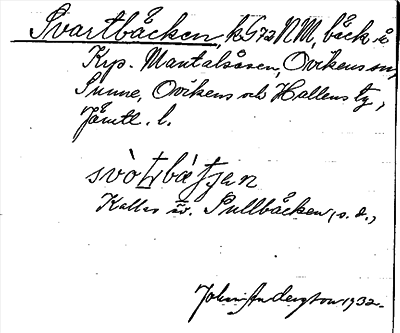 Svartbäcken, kG72NM, bäck å
Krp. Mantalsåsen, Ovikens sn,
Sunne, Ovikens och Hallens tg,
Jämtl. l.
svòtbätjen
Kallas äv. Sullbäcken, s. d.,
John Anderson 1932.